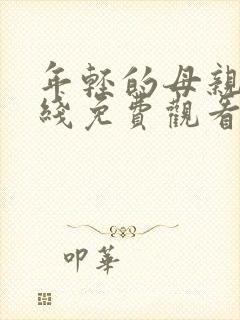 年轻的母親
綫免費觀看
叩華